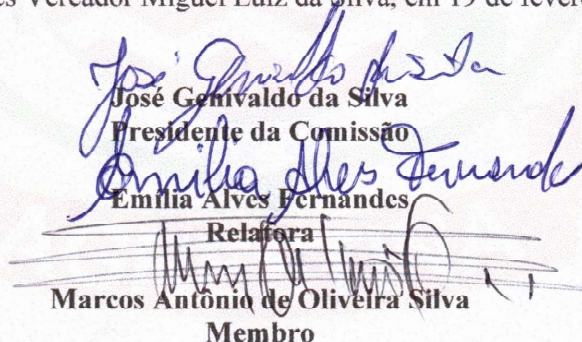 es Vereador Miguel Luiz da Silva, em 19 de fevere
José Genivaldo da Silva
José Genivaldo da Silva
Presidente da Comissão
Emilia Alves Fernandes
Emília Alves Fernandes
Relatora
Marcos Antônio de Oliveira Silva
Membro